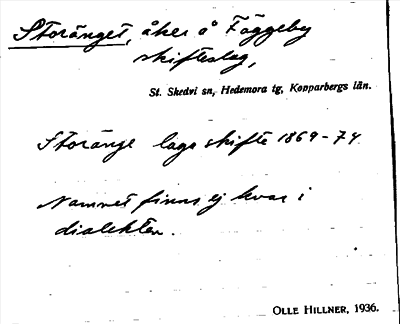 Storänget, åker å Fäggeby
skifteslag,
St. Skedvi sn, Hedemora tg, Kopparbergs län.
Storänge laga skifte 1869-74
Namnet finns ej kvar i
dialekten.
OLLE HILLNER, 1936.